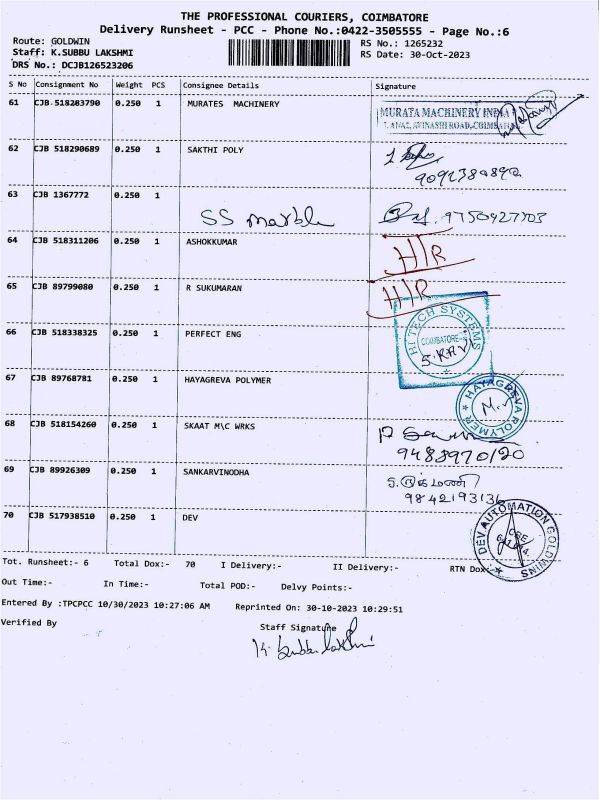 THE PROFESSIONAL COURIERS, COIMBATORE
Delivery Runsheet - PCC - Phone No.:0422-3505555 - Page No.:6
Route: GOLDWIN
RS No.: 1265232
Staff: K.SUBBU LAKSHMI
RS Date: 30-Oct-2023
DRS No.: DCJB126523206
S No Consignment No Weight PCS Consignee Details Signature
61 CJB 518203790 0.250 1 MURATES MACHINERY
MURATA MACHINERY INDIA
AVINASHI ROAD, COIMBATORE
62 CJB 518290689 0.250 1 SAKTHI POLY
63 CJB 1367772 0.250 1
SS marble 9750427703
64 CJB 518311206 0.250 1 ASHOKKUMAR H/R
65 CJB 89799080 0.250 1 R SUKUMARAN H/R
66 CJB 518338325 0.250 1 PERFECT ENG
HI TECH SYSTEMS
COIMBATORE
S. RAVI
67 CJB 89768781 0.250 1 HAYAGREVA POLYMER
HAYAGREVA POLYMER
68 CJB 518154260 0.250 1 SKAAT M\C WRKS
9488970120
69 CJB 89926309 0.250 1 SANKARVINODHA
9842193136
70 CJB 517938510 0.250 1 DEV
DEV AUTOMATION GOLDWINS
CBE
Tot. Runsheet:- 6 Total Dox:- 70 I Delivery:- II Delivery:- RTN Dox:-
Out Time:- In Time:- Total POD:- Delvy Points:-
Entered By :TPCPCC 10/30/2023 10:27:06 AM Reprinted On: 30-10-2023 10:29:51
Verified By Staff Signature
K. Subbu lakshmi